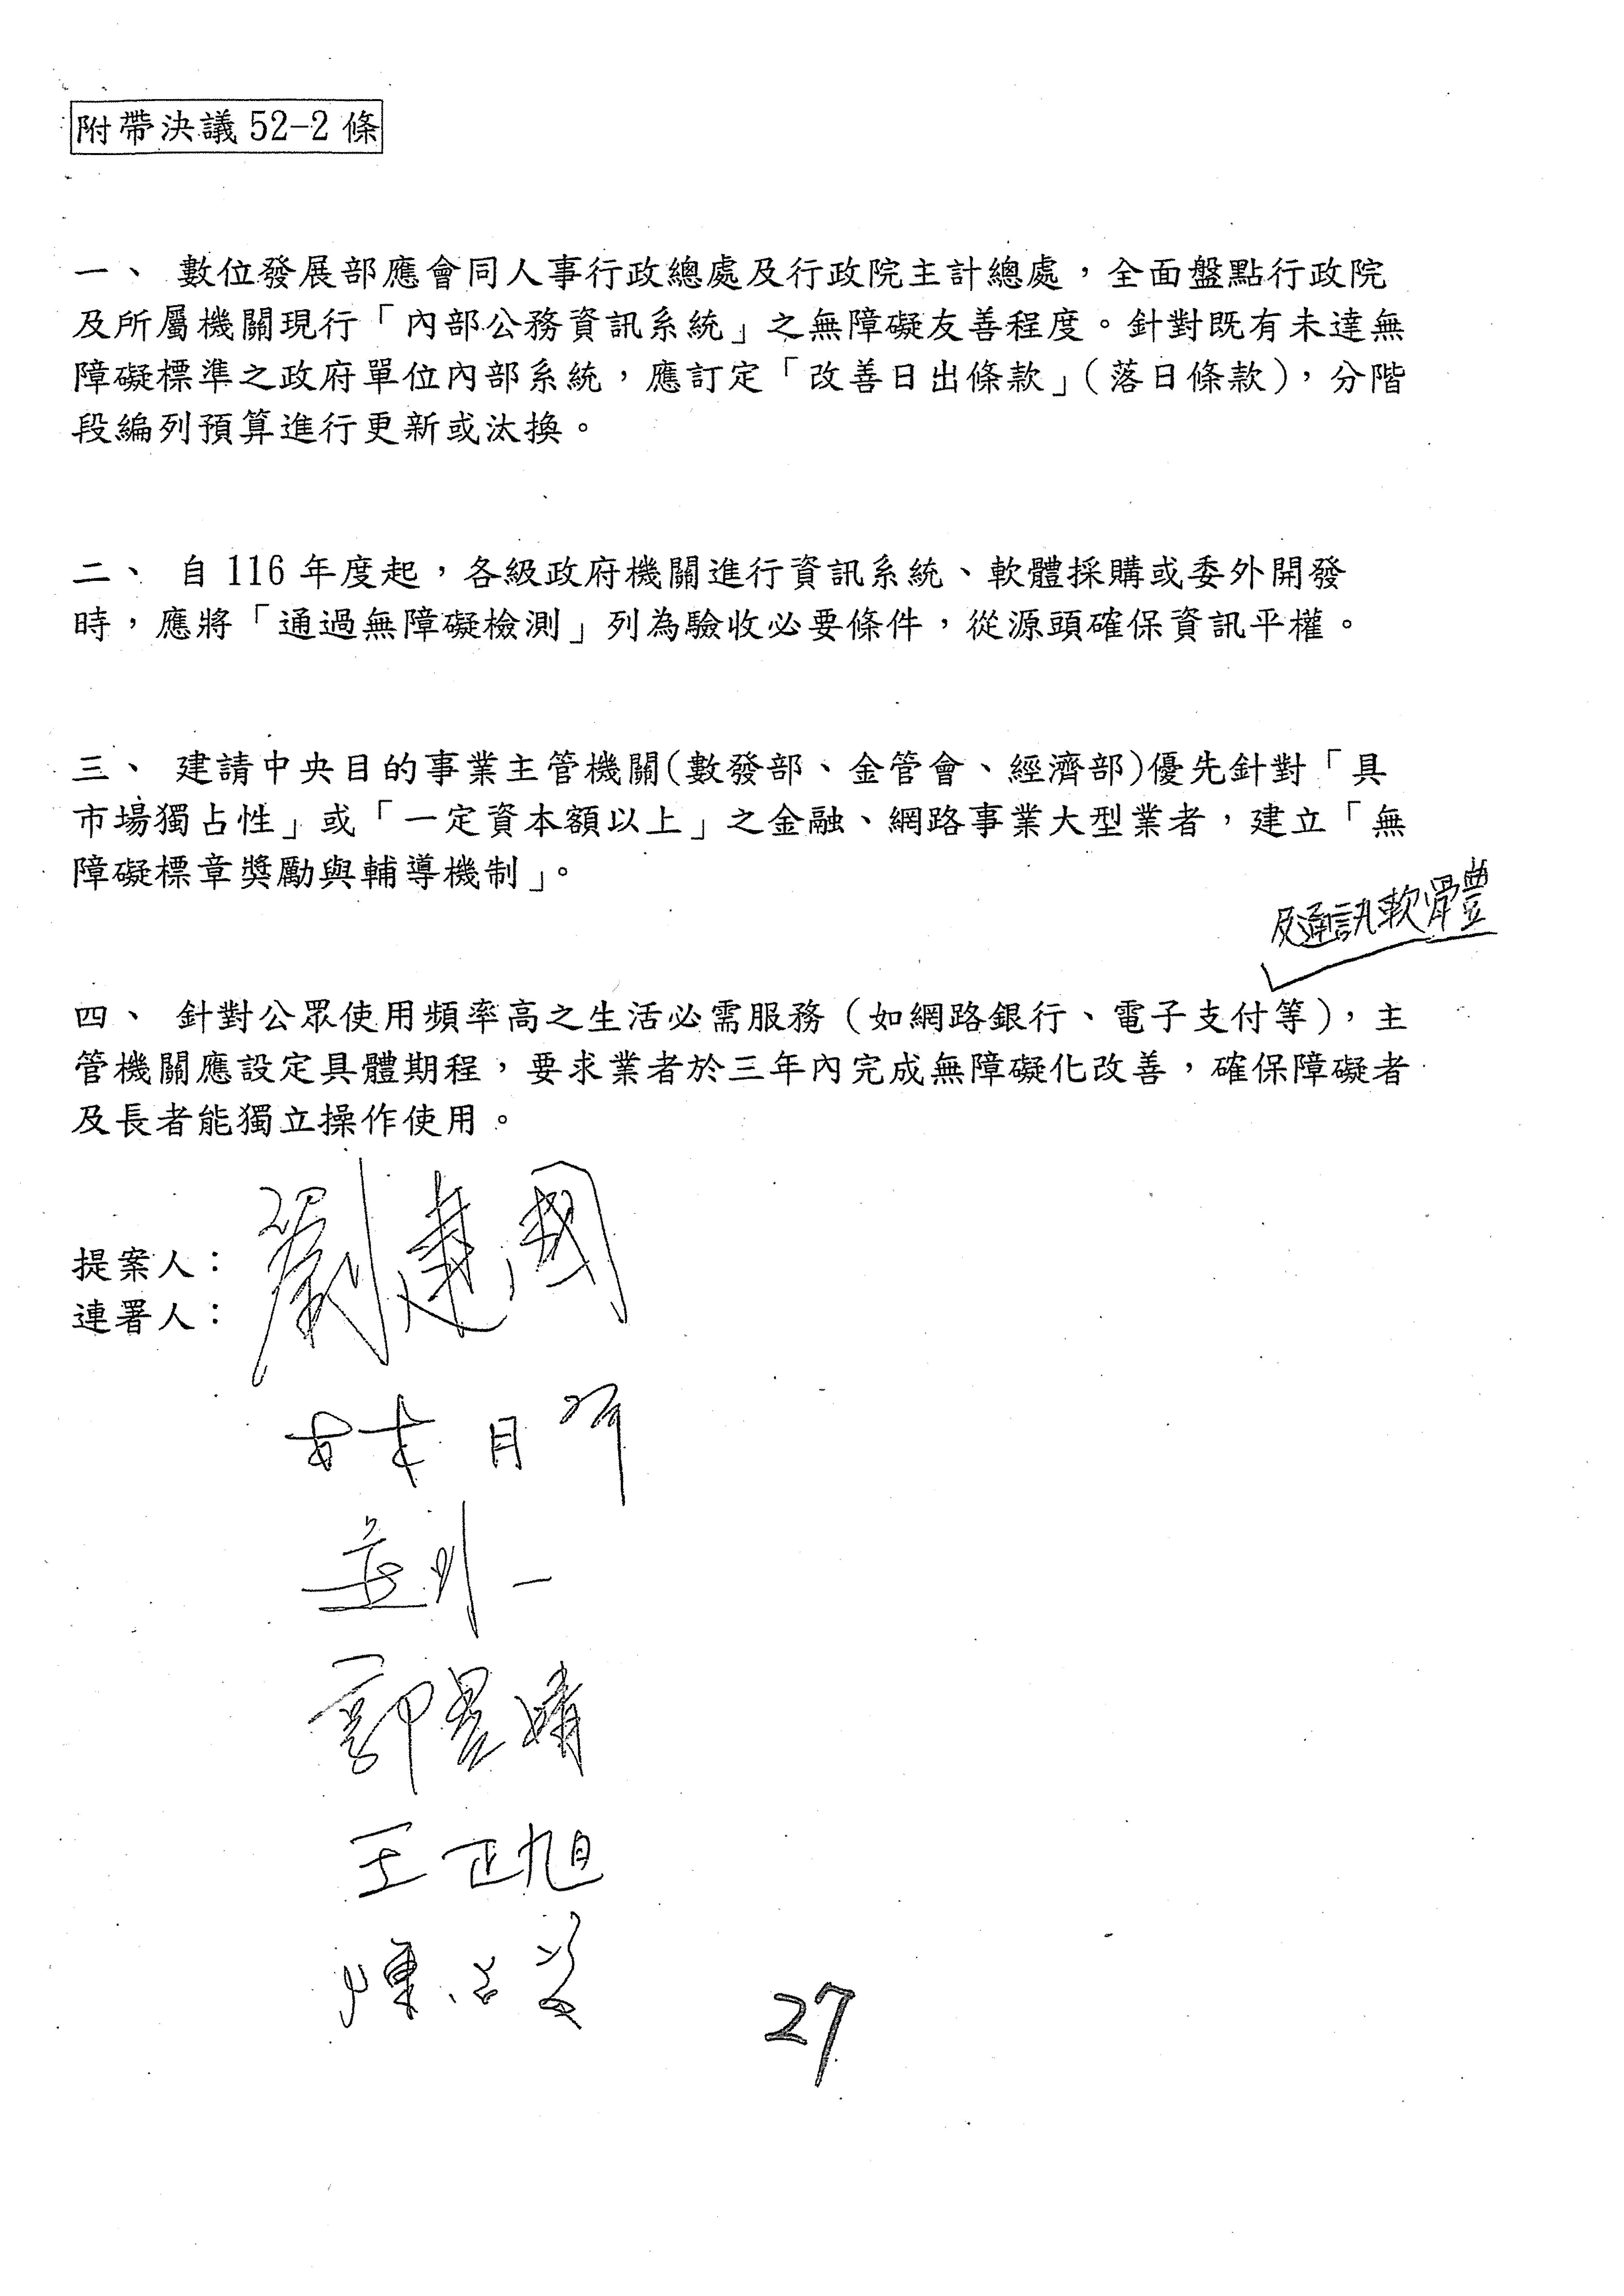 附帶決議 52-2 條
一、 數位發展部應會同人事行政總處及行政院主計總處，全面盤點行政院
及所屬機關現行「內部公務資訊系統」之無障礙友善程度。針對既有未達無
障礙標準之政府單位內部系統，應訂定「改善日出條款」(落日條款)，分階
段編列預算進行更新或汰換。
二、 自 116 年度起，各級政府機關進行資訊系統、軟體採購或委外開發
時，應將「通過無障礙檢測」列為驗收必要條件，從源頭確保資訊平權。
三、 建請中央目的事業主管機關(數發部、金管會、經濟部)優先針對「具
市場獨占性」或「一定資本額以上」之金融、網路事業大型業者，建立「無
障礙標章獎勵與輔導機制」。
及通訊軟體
四、 針對公眾使用頻率高之生活必需服務（如網路銀行、電子支付等），主
管機關應設定具體期程，要求業者於三年內完成無障礙化改善，確保障礙者
及長者能獨立操作使用。
提案人：劉建國
連署人：
郭昱晴
王正旭
27